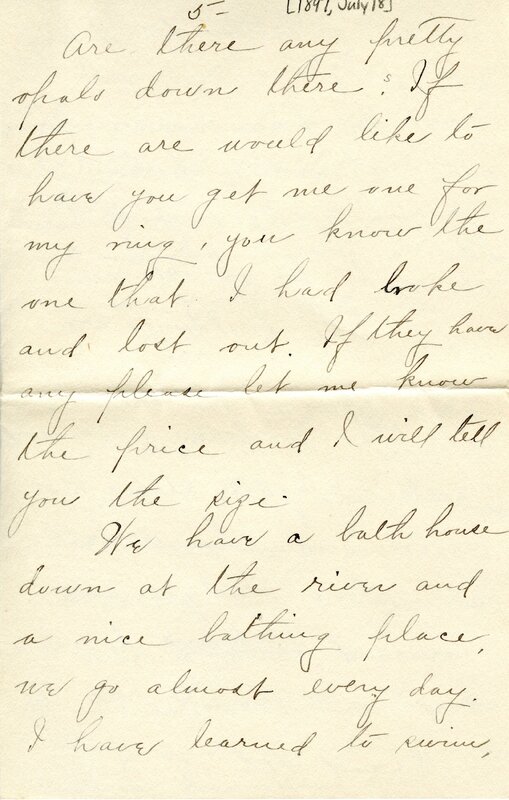 5-
[1897, July 18]
Are there any pretty
opals down there? If
there are would like to
have you get me one for
my ring, you know the
one that I had broke
and lost out. If they have
any please let me know
the price and I will tell
you the size.
We have a bath house
down at the river and
a nice bathing place,
we go almost every day.
I have learned to swim,